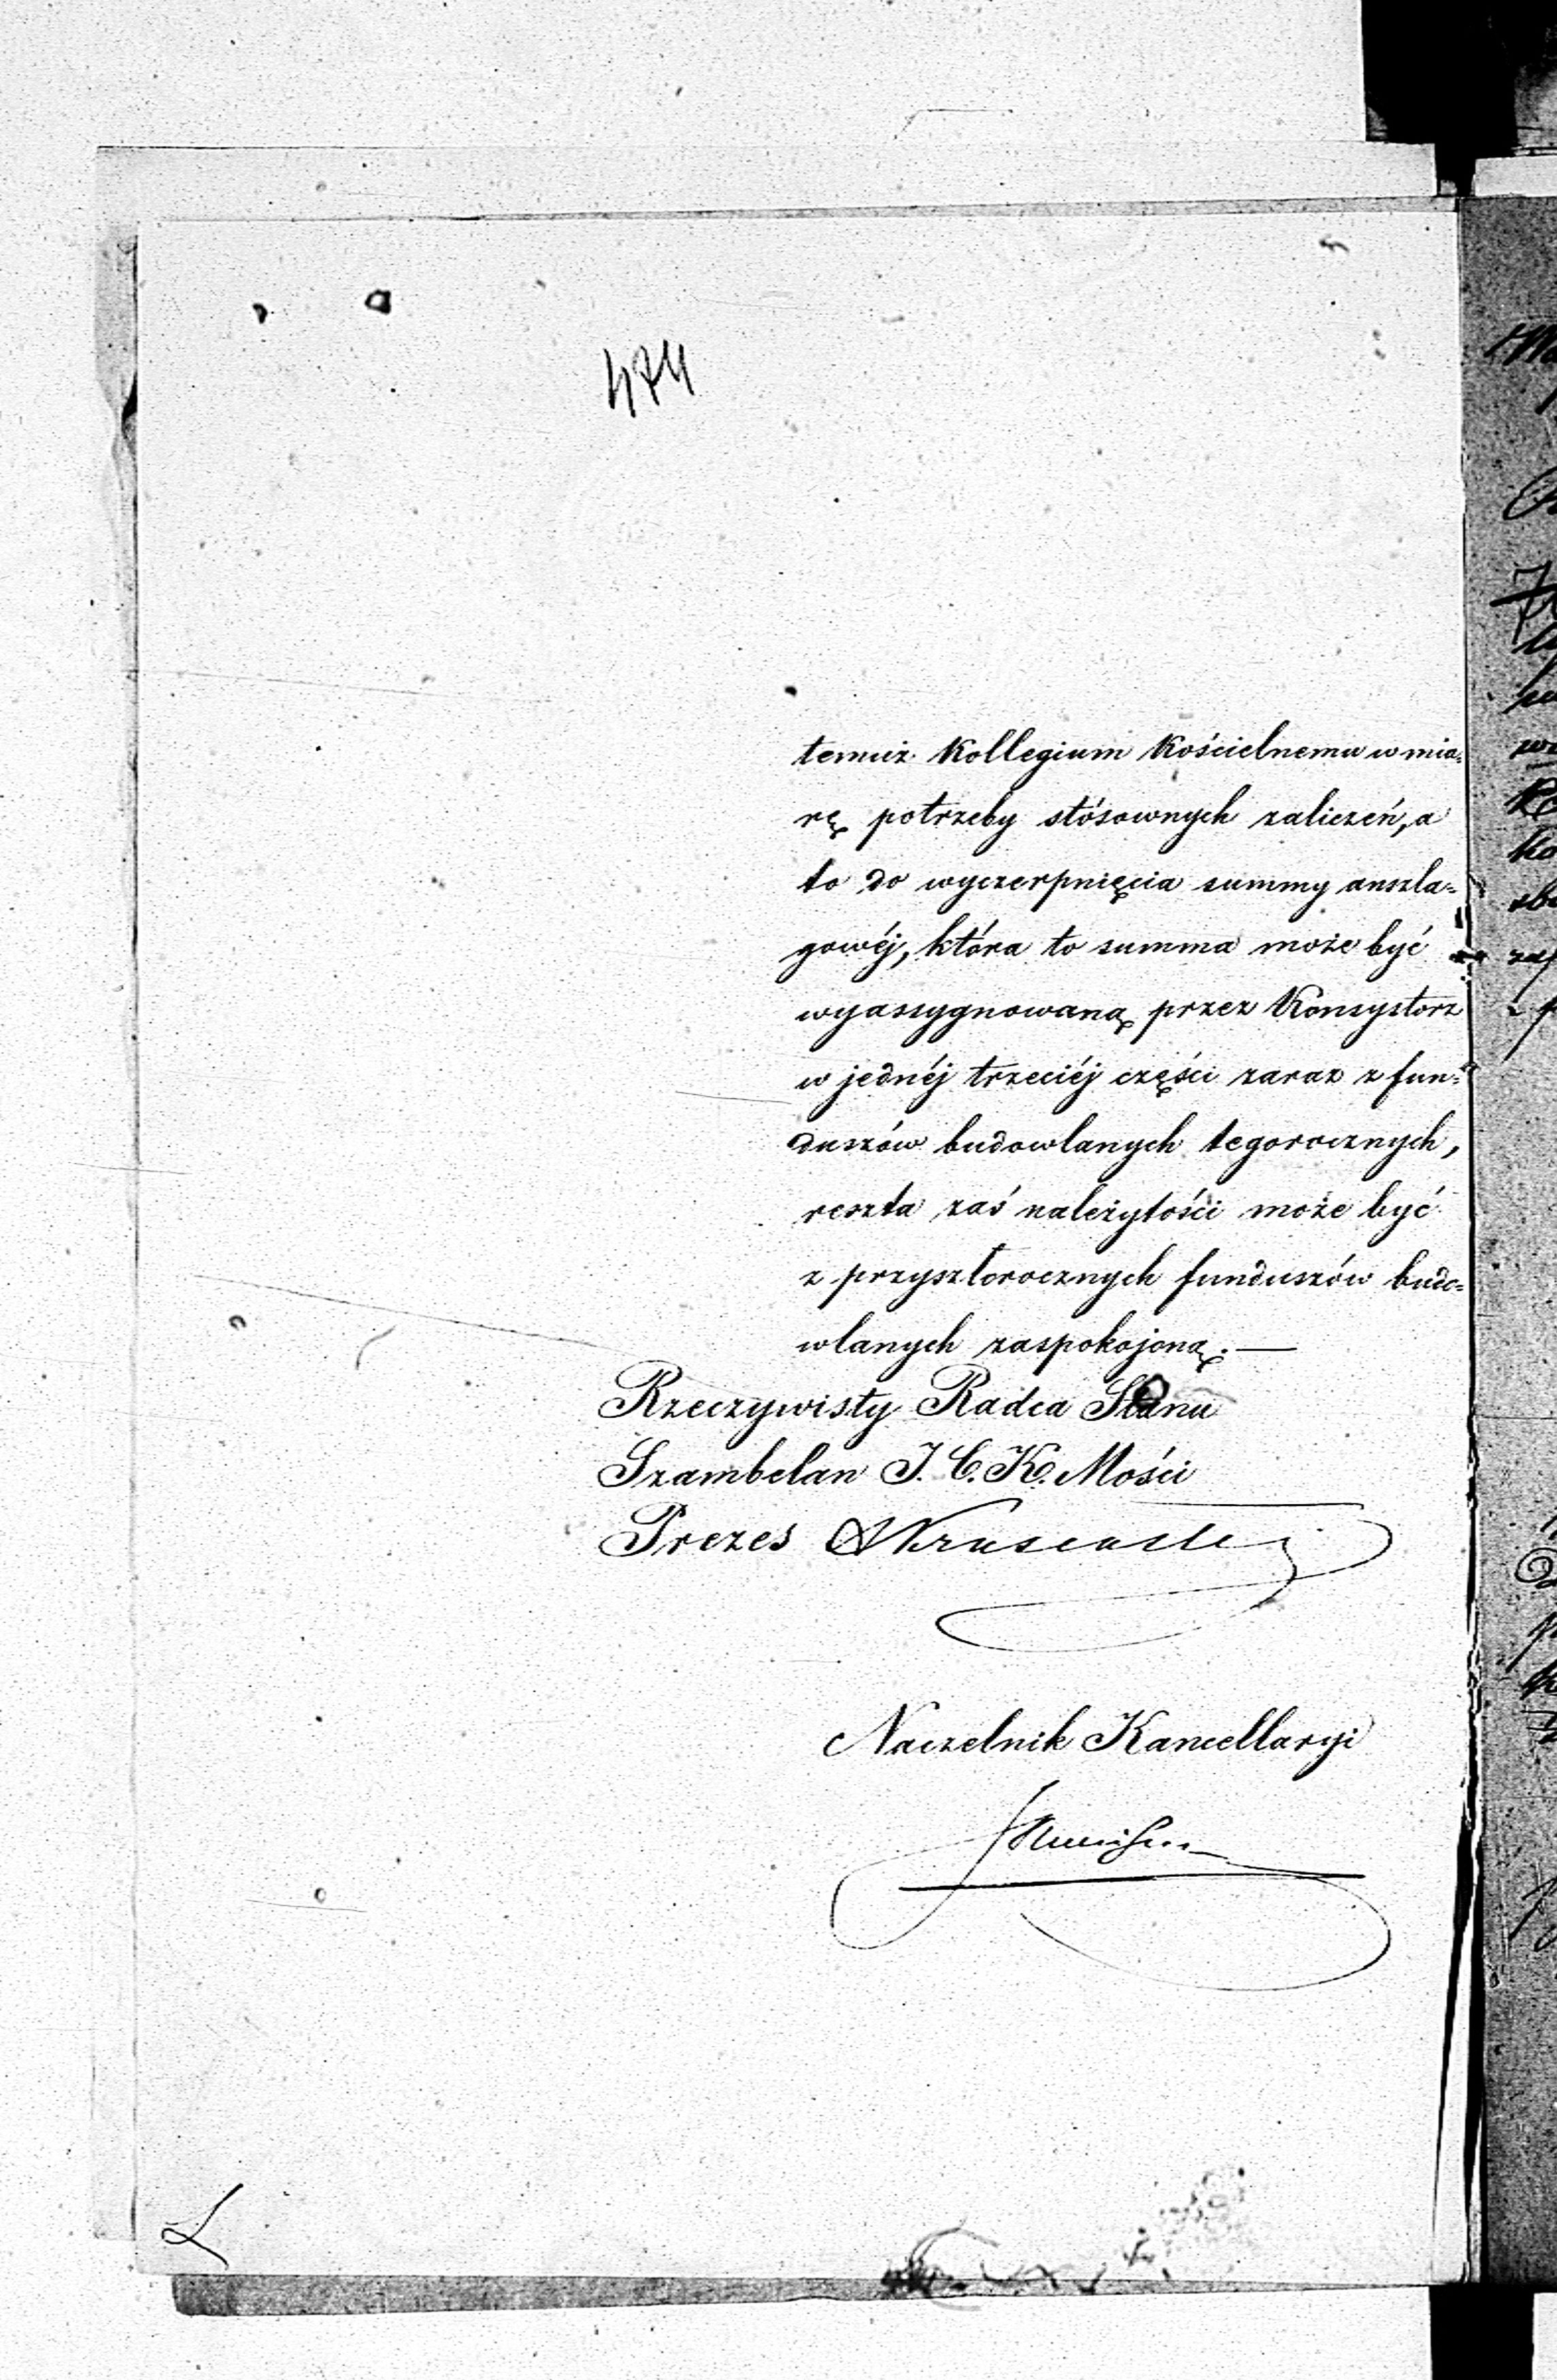 474
temuż Kollegium Kościelnemu w mia=
rę potrzeby stósownych zaliczeń, a
to do wyczerpnięcia summy anszla=
gowéj, która to summa może być
wyassygnowaną przez Konsystorz
w jednéj trzeciéj części zaraz z fun=
duszów budowlanych tegorocznych,
reszta zaś należytości może być
z przyszłorocznych funduszów budo=
wlanych zaspokojoną. —
Rzeczywisty Radca Stanu
Szambelan J. C. K. Mości
Prezes
Naczelnik Kancellaryi